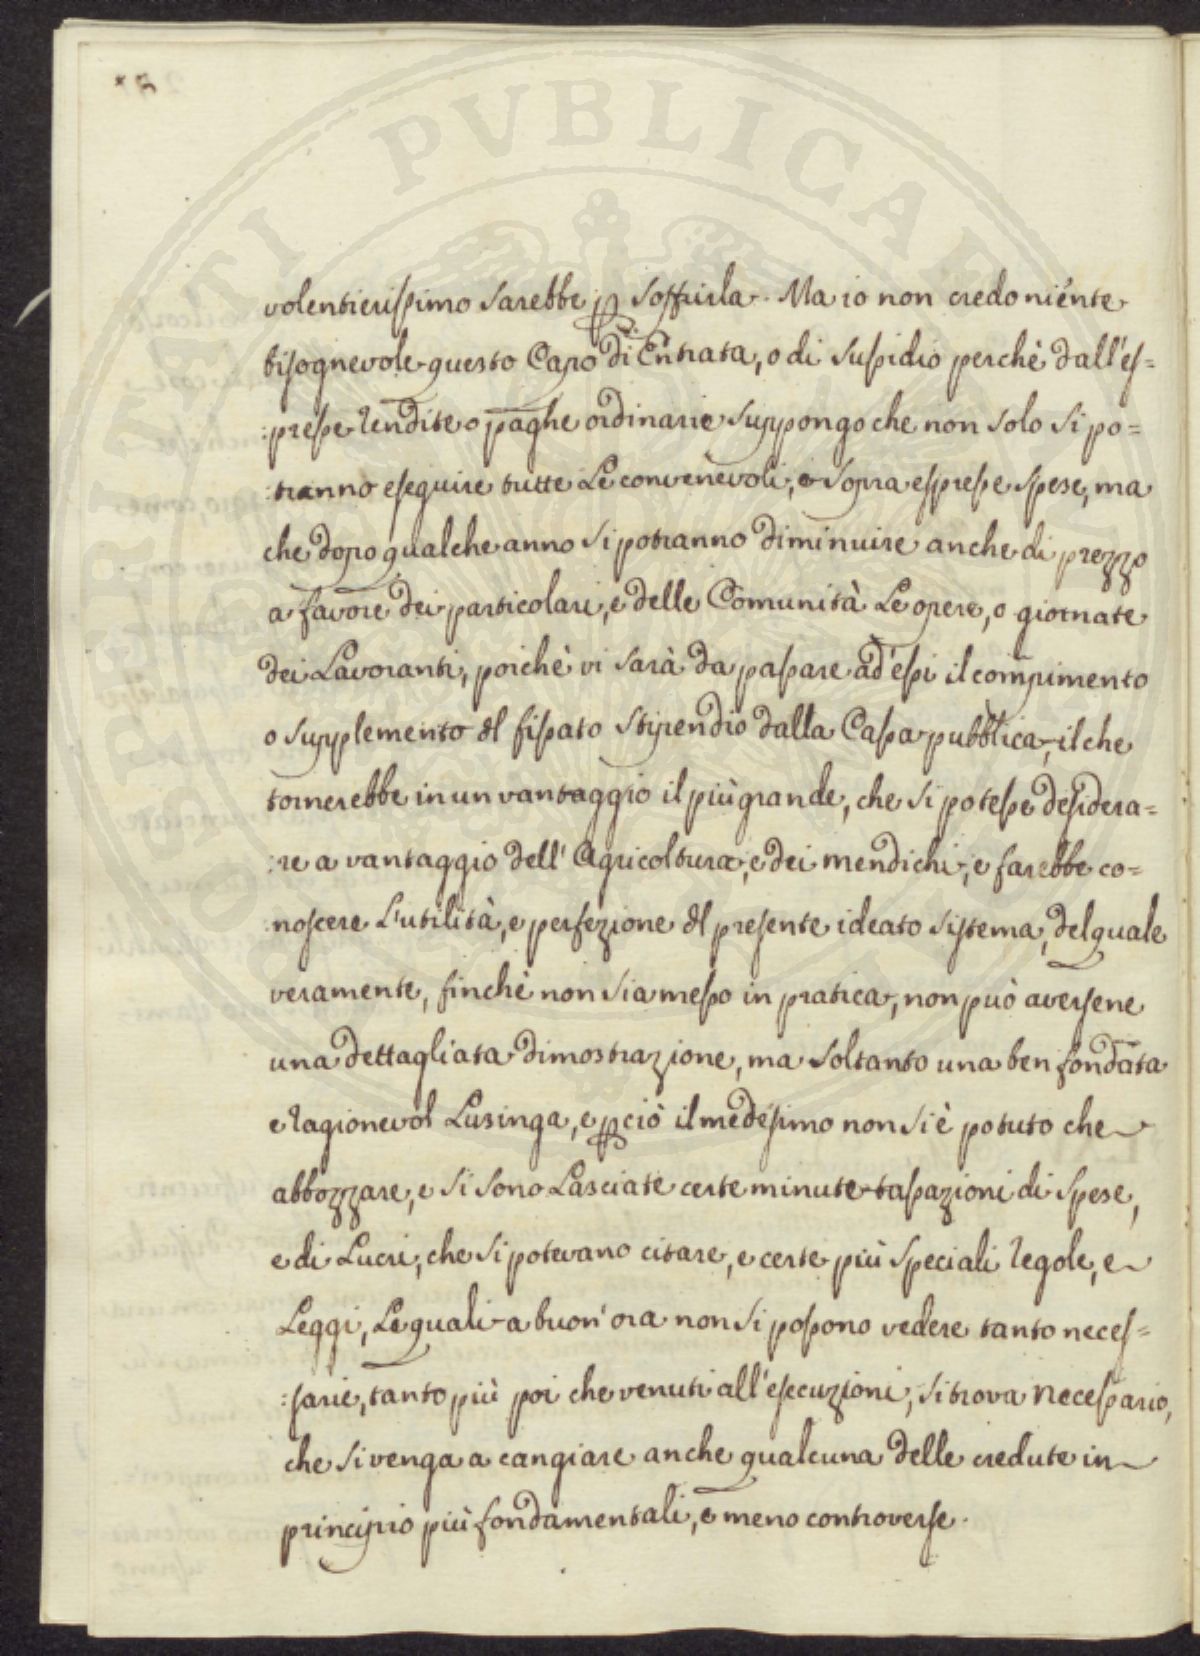 PROSPERITATI PVBLICAE
volentierissimo sarebbe p soffrirla. Ma io non credo niente
bisognevole questo Capo di Entrata, o di sussidio perchè dall'es=
:presse rendite o paghe ordinarie suppongo che non solo si po=
:tranno eseguire tutte le convenevoli, e sopra espresse spese, ma
che dopo qualche anno si potranno diminuire anche di prezzo
a favore dei particolari, e delle Comunità le opere, o giornate
dei Lavoranti, poichè vi sarà da passare ad essi il compimento
o supplemento dl fissato stipendio dalla Cassa pubblica, il che
tornerebbe in un vantaggio il più grande, che si potesse desidera=
:re a vantaggio dell' Agricoltura, e dei mendichi, e farebbe co=
:noscere l'utilità, e perfezione dl presente ideato sistema, del quale
veramente, finchè non sia messo in pratica, non può aversene
una dettagliata dimostrazione, ma soltanto una ben fondata
e ragionevol Lusinga, e pciò il medesimo non si è potuto che
abbozzare, e si sono lasciate certe minute tassazioni di spese,
e di Lucri, che si potevano citare, e certe più speciali regole, e
Leggi, le quali a buon'ora non si possono vedere tanto neces=
:sarie, tanto più poi che venuti all'esecuzioni, si trova necessario,
che si venga a cangiare anche qualcuna delle credute in
principio più fondamentali, e meno controverse.